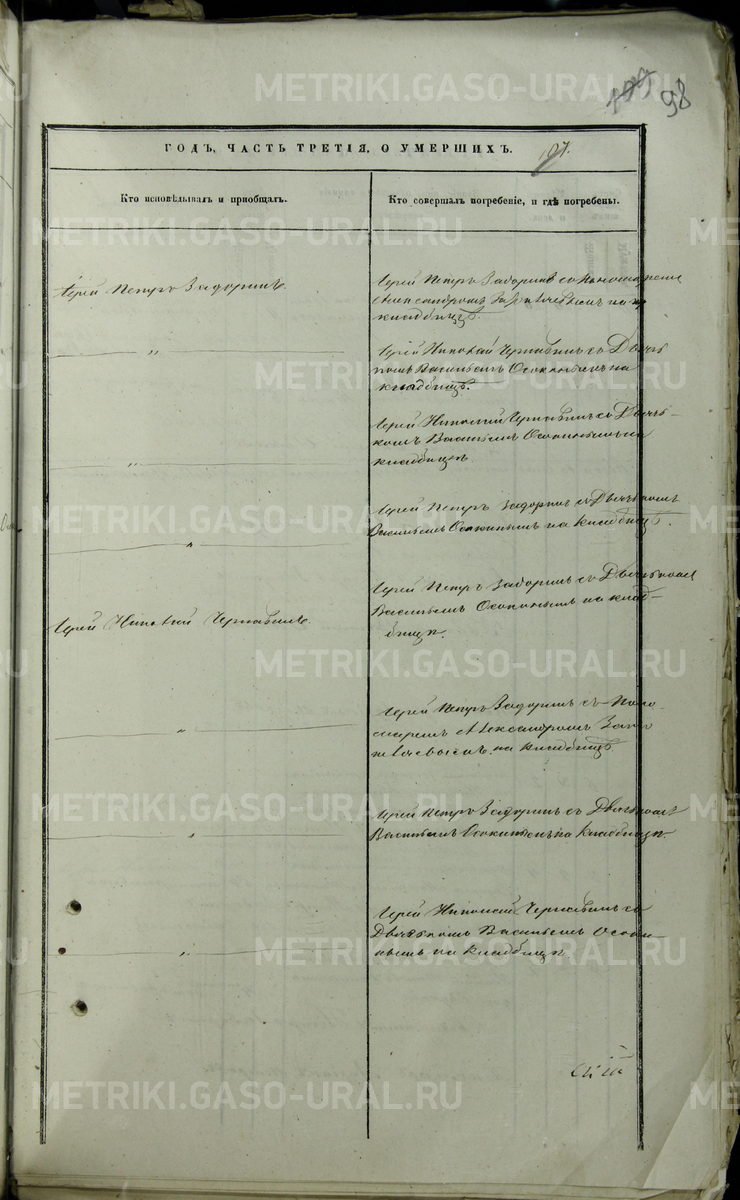 98
ГОДЪ, ЧАСТЬ ТРЕТІЯ, О УМЕРШИХЪ.
197.
Кто исповѣдывалъ и пріобщалъ.
Кто совершалъ погребеніе, и гдѣ погребены.
Іерей Петръ Задоринъ
Іерей Петръ Задоринъ съ Пономаремъ
Александромъ на
кладбищѣ.
"
Іерей Николай Чернавинъ съ Дьяч
комъ Васильемъ Осокинымъ на
кладбищѣ.
Іерей Николай Чернавинъ съ Дьяч-
комъ Васильемъ Осокинымъ на
кладбищѣ
"
Іерей Петръ Задоринъ съ Дьячкомъ
Васильемъ Осокинымъ на кладбищѣ.
"
Іерей Николай Чернавинъ
Іерей Петръ Задоринъ съ Дьячкомъ
Васильемъ Осокинымъ на клад-
бищѣ.
"
Іерей Петръ Задоринъ съ Поно-
маремъ Александромъ
на кладбищѣ.
"
Іерей Петръ Задоринъ съ Дьячкомъ
Васильемъ Осокинымъ на кладбищѣ.
"
Іерей Николай Чернавинъ съ
Дьячкомъ Васильемъ Осоки-
нымъ на кладбищѣ.
METRIKI.GASO-URAL.RU